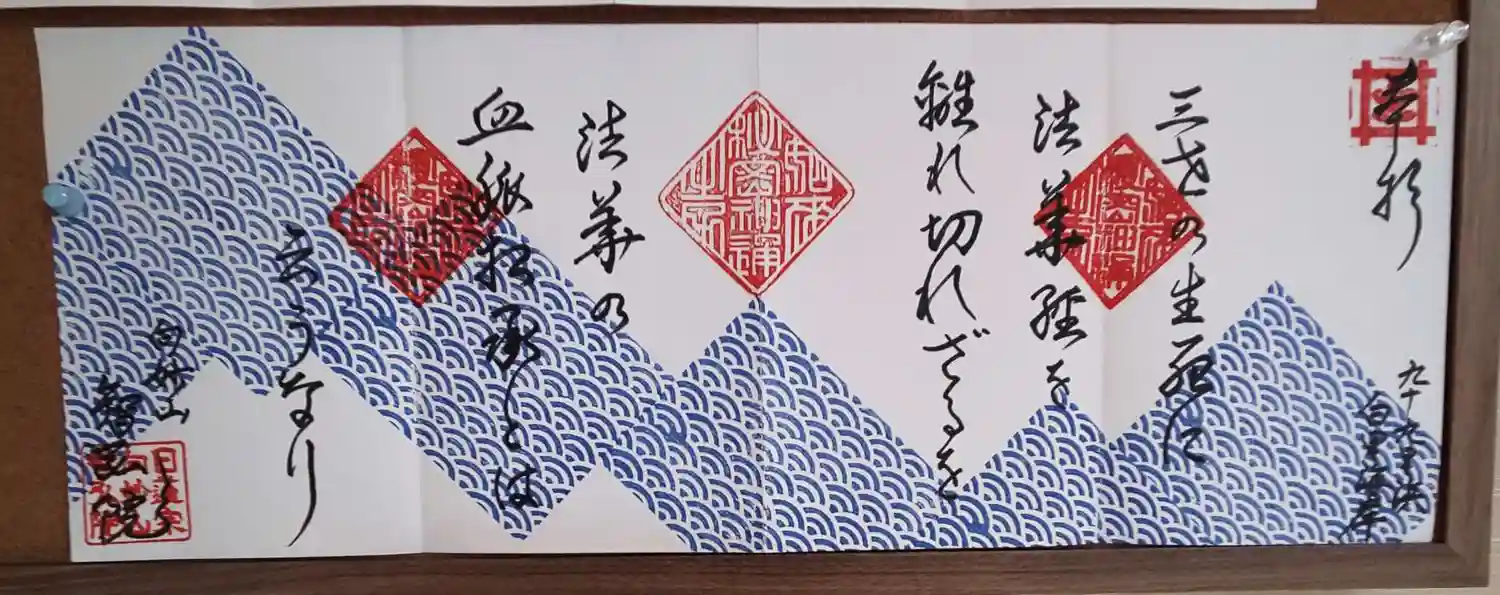 奉拝
九十九里浜
白里海岸
三世の生死に
法華経を
離れ切れざるを
法華の
血脈相承とは
云うなり
白妙山
智弘院